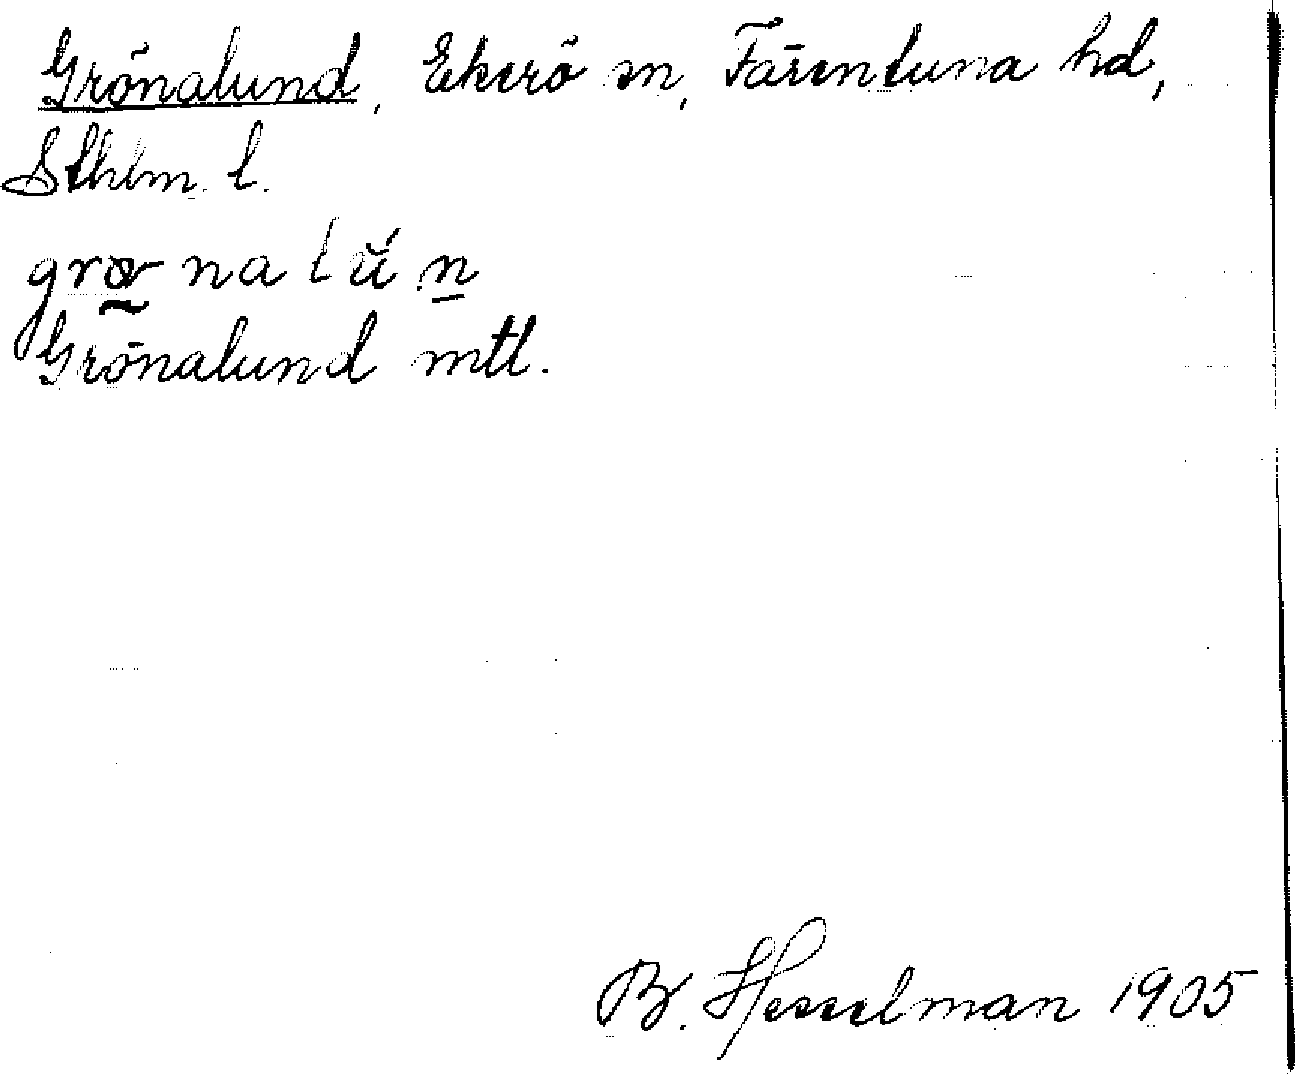 Grönalund, Ekerö sn, Färentuna hd,
Sthlm. l.
grø̰ na lŭ́ n̲
Grönalund mtl.
B. Hesselman 1905